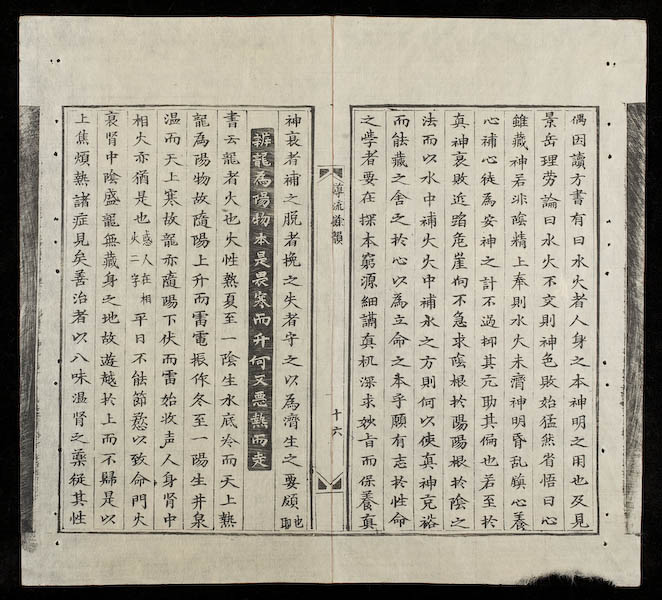 偶因讀方書有曰水火者人身之本神明之用也及見
景岳理勞論曰水火不交則神色敗始猛然省悟曰心
雖藏神若非陰精上奉則水火未濟神明昏乱鎮心養
心補心徒為安神之計不過抑其亢助其偏也若至於
真神衰敗近臨危崖何不急求陰根於陽陽根於陰之
法而以水中補火火中補水之方則何以使真神充裕
而能藏之舍之於心以為立命之本乎願有志於性命
之學者要在探本窮源細講真机深求妙旨而保養真
導流餘韻
十六
神衰者補之脫者挽之失者守之以為濟生之要頗也
辨龍為陽物本是畏寒而升何又惡熱而走
書云龍者火也火性熱夏至一陰生水底冷而天上熱
龍為陽物故隨陽上升而雷電振作冬至一陽生井泉
温而天上寒故龍亦隨陽下伏而雷始收声人身腎中
相火亦猶是也惑人在相火二字平日不能節慾以致命門火
衰腎中陰盛龍無藏身之地故遊越於上而不歸是以
上焦煩熱諸症見矣善治者以八味温腎之藥從其性